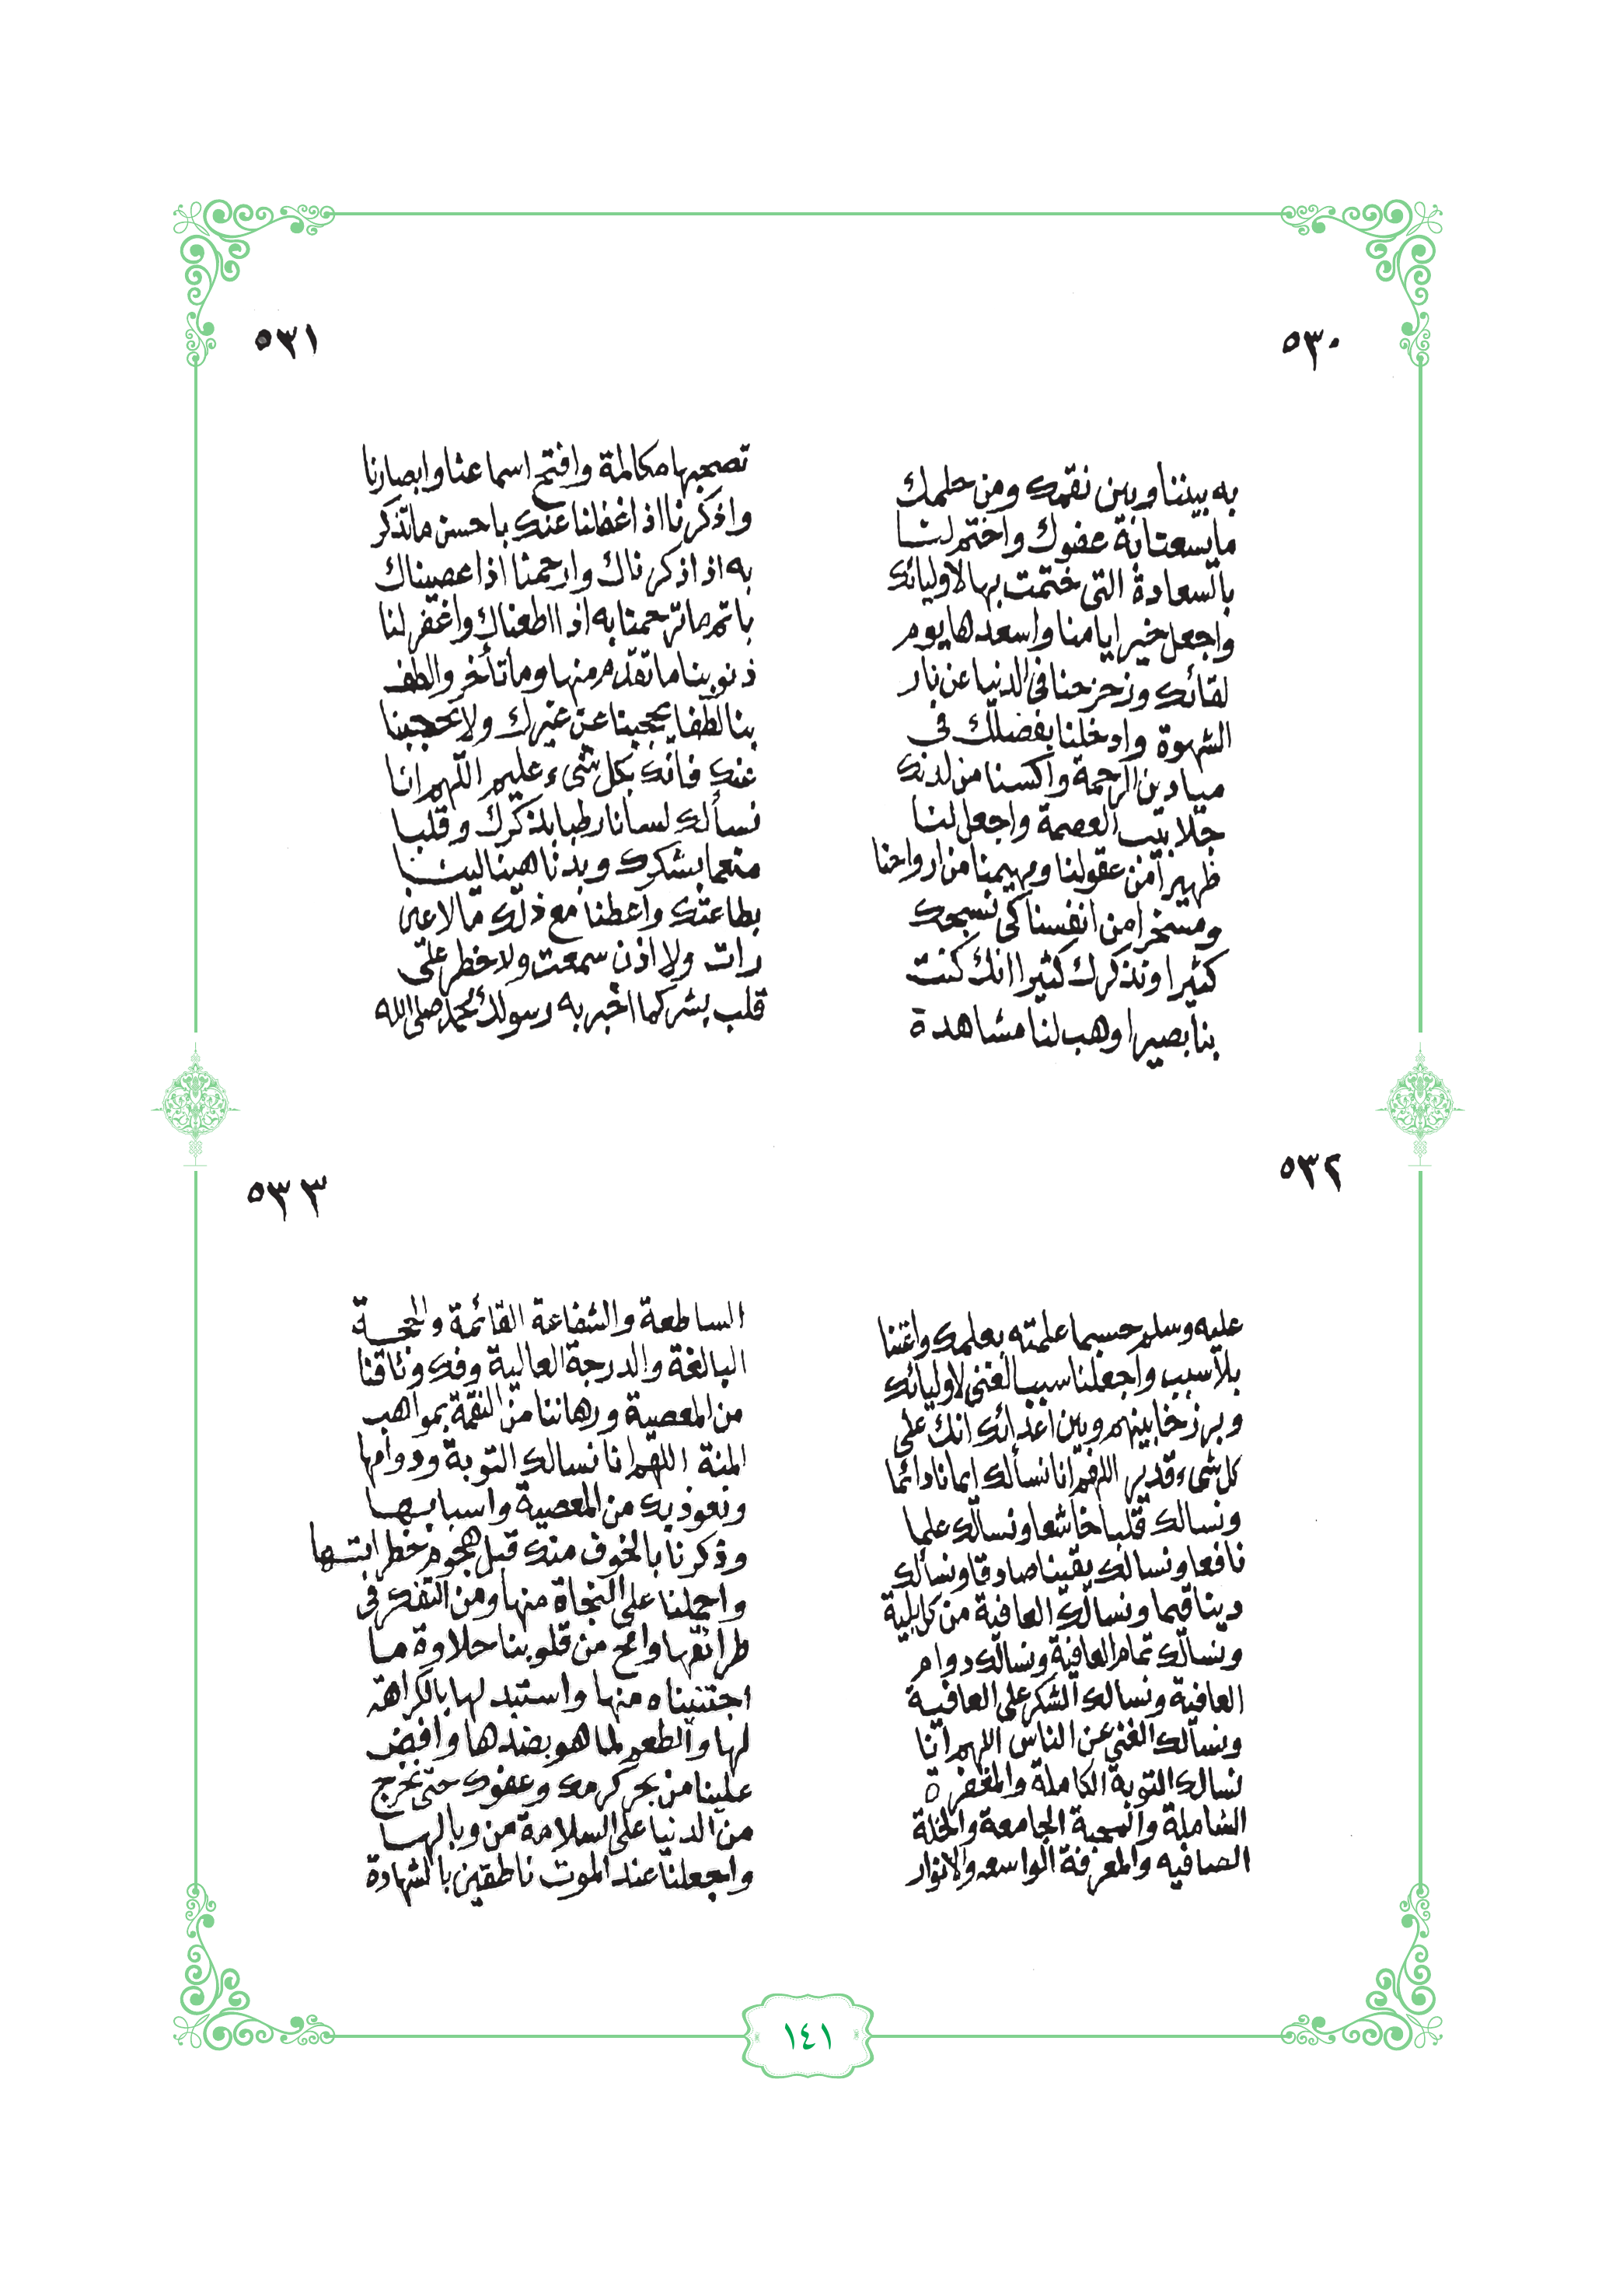 ٥٣٠
به بيننا وبين نقمك ومن حلمك
ما يسعنا به عفوك واختم لنا
بالسعادة التى ختمت بها لاوليائك
واجعل خير ايامنا واسعدها يوم
لقائك وزحزحنا فى الدنيا عن نار
الشهوة وادخلنا بفضلك فى
ميادين الرحمة واكسنا من لدنك
جلابيب العصمة واجعل لنا
ظهيرا من عقولنا ومهيمنا من ارواحنا
ومسخرا من انفسنا كى نسبحك
كثيرا ونذكرك كثيرا انك كنت
بنا بصيرا وهب لنا مشاهدة
٥٣١
تصحبها مكالمة وافتح اسماعنا وابصارنا
واذكرنا اذا غفلنا عنك باحسن ما تذكر
به اذا ذكرناك وارحمنا اذا عصيناك
باتم ما ترحمنا به اذا اطعناك واغفر لنا
ذنوبنا ما تقدم منها وما تأخر والطف
بنا لطفا يحجبنا عن غيرك ولا تحجبنا
عنك فانك بكل شىء عليم اللهم انا
نسألك لسانا رطبا بذكرك وقلبا
منعما بشكرك وبدنا هينا لينا
بطاعتك واعطنا مع ذلك ما لا عين
رات ولا اذن سمعت ولا خطر على
قلب بشر كما اخبر به رسولك محمد صلى الله
٥٣٢
عليه وسلم حسبما علمته بعلمك واغننا
بلا سبب واجعلنا سبب الغنى لاوليائك
وبرزخا بينهم وبين اعدائك انك على
كل شىء قدير اللهم انا نسألك ايمانا دائما
ونسالك قلبا خاشعا ونسالك علما
نافعا ونسالك يقينا صادقا ونسألك
دينا قيما ونسالك العافية من كل بلية
ونسالك تمام العافية ونسالك دوام
العافية ونسالك الشكر على العافية
ونسألك الغنى عن الناس اللهم انا
نسالك التوبة الكاملة والمغفرة
الشاملة والمحبة الجامعة والخلة
الصافيه والمعرفة الواسعه والانوار
٥٣٣
الساطعة والشفاعة القائمة والحجة
البالغة والدرجة العالية وفك وثاقنا
من المعصية ورهاننا من النقمة بمواهب
المنة اللهم انا نسالك التوبة ودوامها
ونعوذ بك من المعصية واسبابها
وذكرنا بالخوف منك قبل هجوم خطراتها
واحملنا على النجاة منها ومن التفكر فى
طرائقها وامح من قلوبنا حلاوة ما
اجتنيناه منها واستبدلها بالكراهة
لها والطعم لما هو بضدها وافض
علينا من بحر كرمك وعفوك حتى نخرج
من الدنيا على السلامة من وبالها
واجعلنا عند الموت ناطقين بالشهادة
١٤١